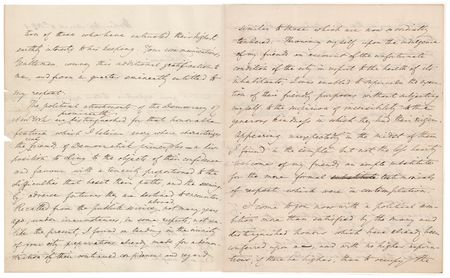 Son of those who have entrusted their highest
earthly interests to his keeping. Your communication,
Gentlemen, conveys this additional gratification to
me, and from a quarter eminently entitled to
my respect.
The political attachments of the democracy of
New York are distinguished for that honorable
prominently
feature which I believe every where characterizes
the friends of Democratic principles, viz, a dis-
position to cling to the objects of their confidence
and favour with a tenacity proportioned to the
difficulties that beset their paths, and the seeming
by adverse fortune
Recalled from the public service, not many years
abroad
ago, under circumstances, in some respects, not un-
like the present, I found on landing in the vicinity
of your city preparations already made for a demon-
stration of their continued confidence and regard
similar to those which are now so kindly
tendered. Throwing myself upon the indulgence
of my friends on account of the unfortunate
condition of the city in respect to the health of its
inhabitants I was enabled to supersede the execu-
tion of their friendly purposes without subjecting
myself to the suspicion of insensibility to the
generous kindness in which they had their origin
appearing unexpectedly in the midst of them
I found in the simple but not the less hearty
welcome of my friends an ample substitute
for the more formal testimonials
of respect which were in contemplation.
I come to you now with a political am-
bition more than satisfied by the many and
distinguished honors which have already been
conferred upon me, and with no higher expecta-
tions, if